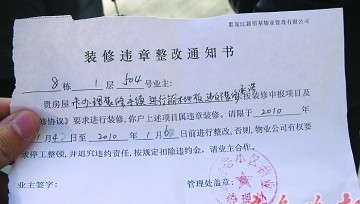 黑龙江新宿基物业管理有限公司
装修违章整改通知书
8 栋 1 层 504号业主:
贵房屋 未办理装修手续 进行
按装修申报项目及
修协议》要求进行装修,你户上述项目属违章装修。请限于 2010 年
1 月 日至 2010 年 1 月 6 日前进行整改,否则,物业公司有权要
求停工整顿,并追究违约责任,按规定扣除违约金。请业主合作。
业主签字:
管理处盖章: